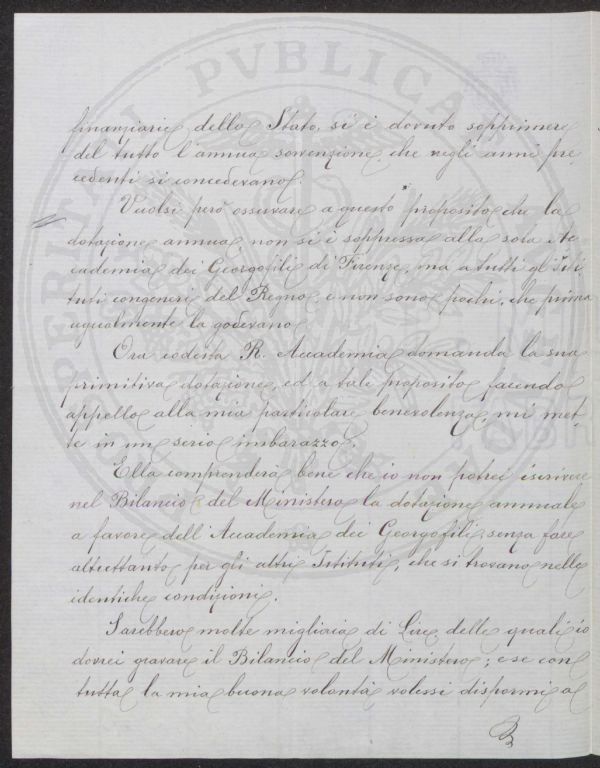 finanziarie dello Stato, si è dovuto sopprimere
del tutto l'annua sovvenzione che negli anni pre
cedenti si concedevano.
Vuolsi però osservare a questo proposito che la
dotazione annua non si è soppressa alla sola Ac
cademia dei Georgofili di Firenze, ma a tutti gl'Isti
tuti congeneri del Regno, e non sono pochi, che prima
egualmente la godevano.
Ora codesta R. Accademia domanda la sua
primitiva dotazione, ed a tale proposito facendo
appello alla mia particolare benevolenza, mi met-
te in un serio imbarazzo.
Ella comprenderà bene che io non potrei iscrivere
nel Bilancio del Ministero la dotazione annuale
a favore dell'Accademia dei Georgofili, senza fare
altrettanto per gli altri Istituti, che si trovano nelle
identiche condizioni.
Sarebbero molte migliaia di Lire delle quali io
dovrei gravare il Bilancio del Ministero; e se con
tutta la mia buona volontà volessi dispormi a
PVBLICA